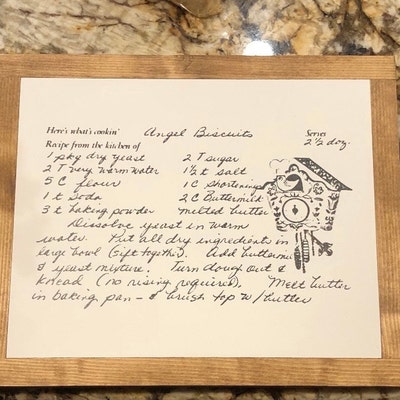 Here's what's cookin' Angel Biscuits Serves 2½ doz.
Recipe from the kitchen of
1 pkg dry yeast 2 T sugar
2 T very warm water 1½ t salt
5 C flour 1 C Shortening
1 t Soda 2 C Buttermilk
3 t baking powder melted butter
Dissolve yeast in warm
water. Put all dry ingredients in
large bowl (sift together). Add buttermilk
& yeast mixture. Turn dough out &
Knead (no rising required). Melt butter
in baking pan - & brush top w/ butter